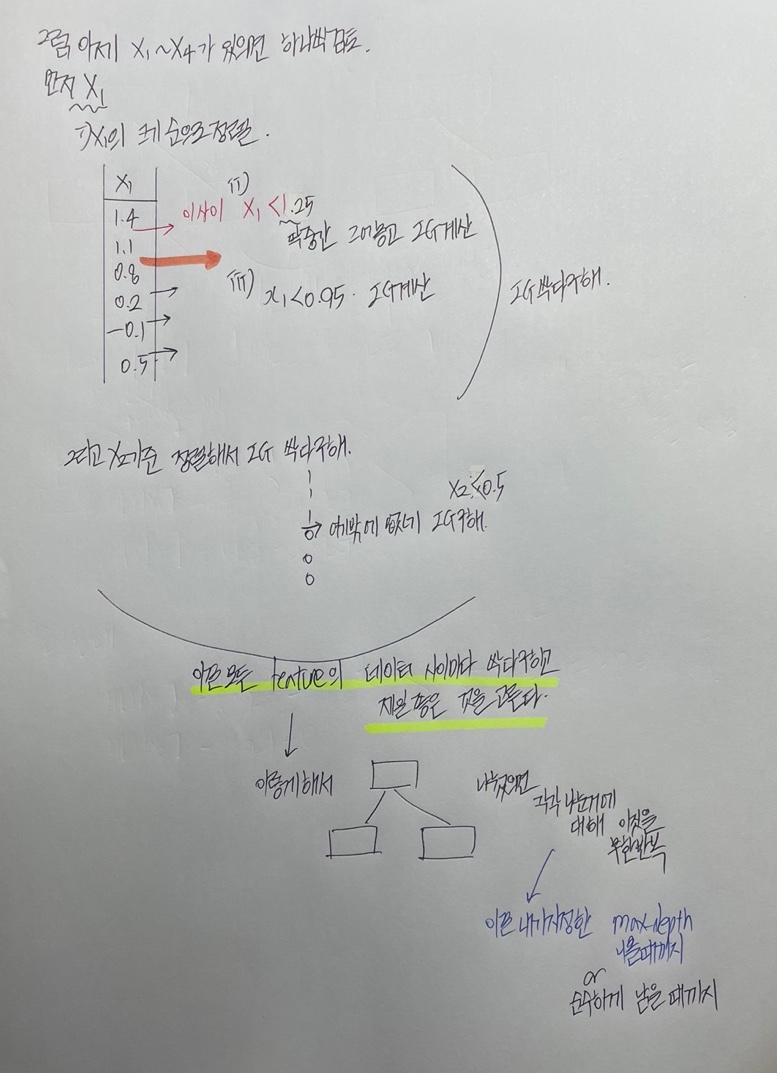 그럼 이제 X₁~X₄가 있으면 하나씩 검토.
먼저 X₁
i) X₁의 크기 순으로 정렬.
X₁
1.4
1.1
0.8
0.2
-0.1
0.5
ii)
이사이 X₁ < 1.25
딱중간 그어놓고 IG계산
iii) x₁ < 0.95. IG계산
IG 싹다구해.
그리고 X₂기준 정렬해서 IG 싹다구해.
1
1
1
0
0
0
X₂ < 0.5
→ 여기밖에 없네 IG구해.
이란 모든 feature의 데이터 사이마다 싹다구하고
제일 좋은 것을 고른다.
이렇게해서
나눠졌으면
각각 나눈거에
대해 이짓을
무한반복
이란 내가지정한 max-depth
나올때까지
or
순수하게 남을 때까지